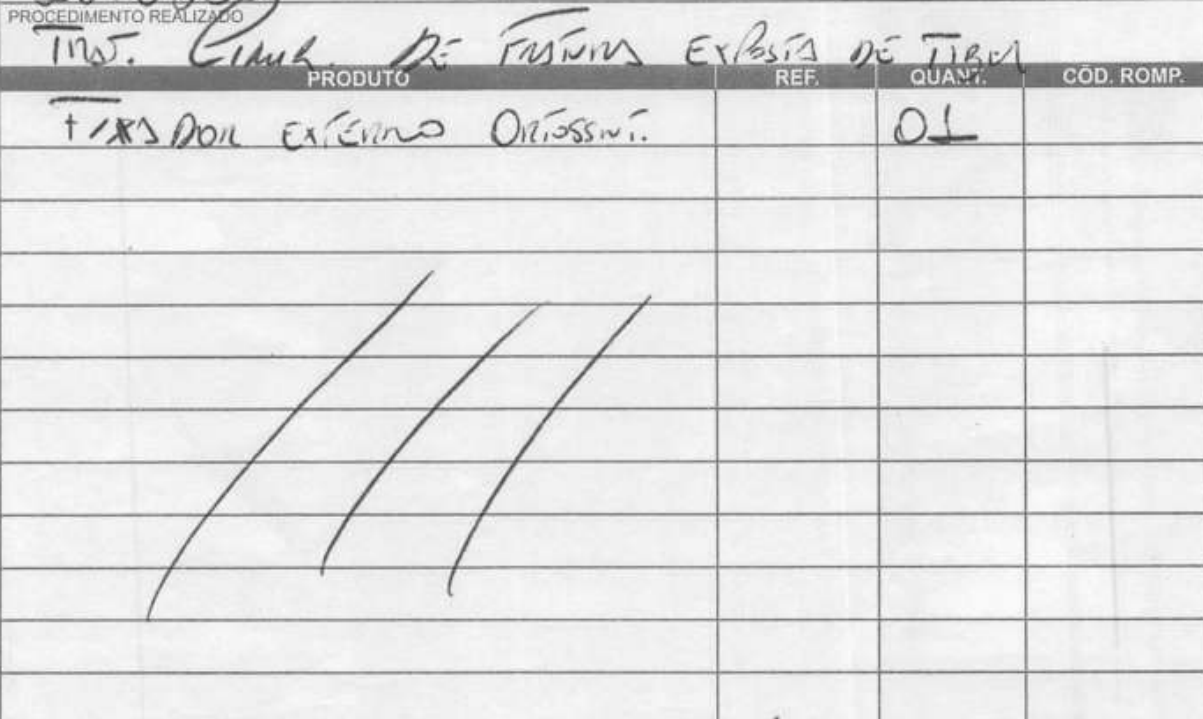 PROCEDIMENTO REALIZADO
TRAT. CIRUR. DE FRATURA EXPOSTA DE TIBIA
PRODUTO REF. QUANT. CÓD. ROMP.
FIXADOR EXTERNO ORTOSSINT. 01